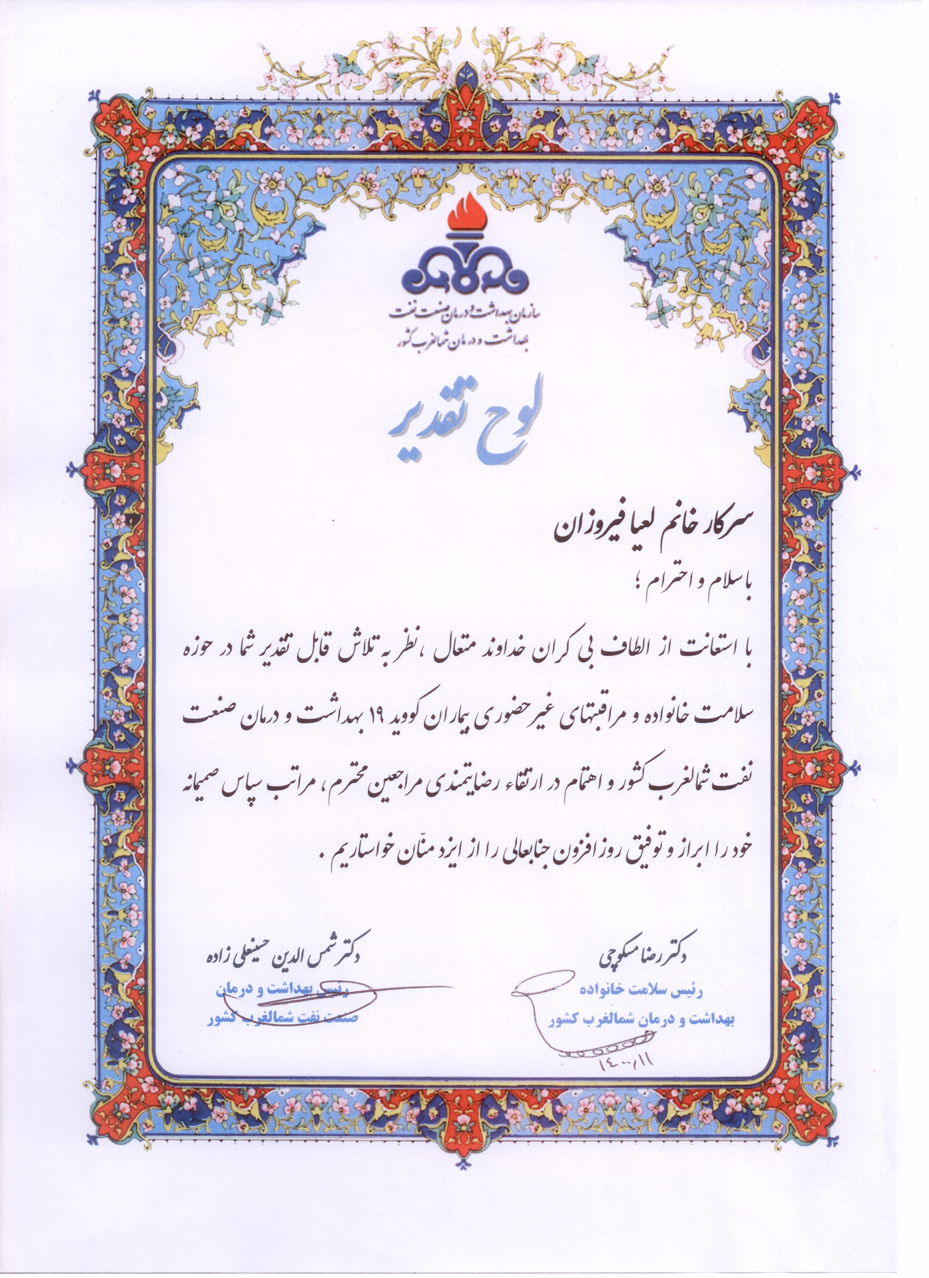 سازمان بهداشت و درمان صنعت نفت
بهداشت و درمان شمالغرب کشور
لوح تقدیر
سرکار خانم لعیا فیروزان
باسلام و احترام ؛
با استعانت از الطاف بی کران خداوند متعال ،نظر به تلاش قابل تقدیر شما در حوزه
سلامت خانواده و مراقبتهای غیرحضوری بیماران کووید ۱۹ بهداشت و درمان صنعت
نفت شمالغرب کشور و اهتمام در ارتقاء رضایتمندی مراجعین محترم ، مراتب سپاس صمیمانه
خود را ابراز و توفیق روز افزون جنابعالی را از ایزد منّان خواستاریم .
دکتر رضا مسکوچی
رئیس سلامت خانواده
بهداشت و درمان شمالغرب کشور
۱۴۰۰٫۱۱
دکتر شمس الدین حسینعلی زاده
رئیس بهداشت و درمان
صنعت نفت شمالغرب کشور